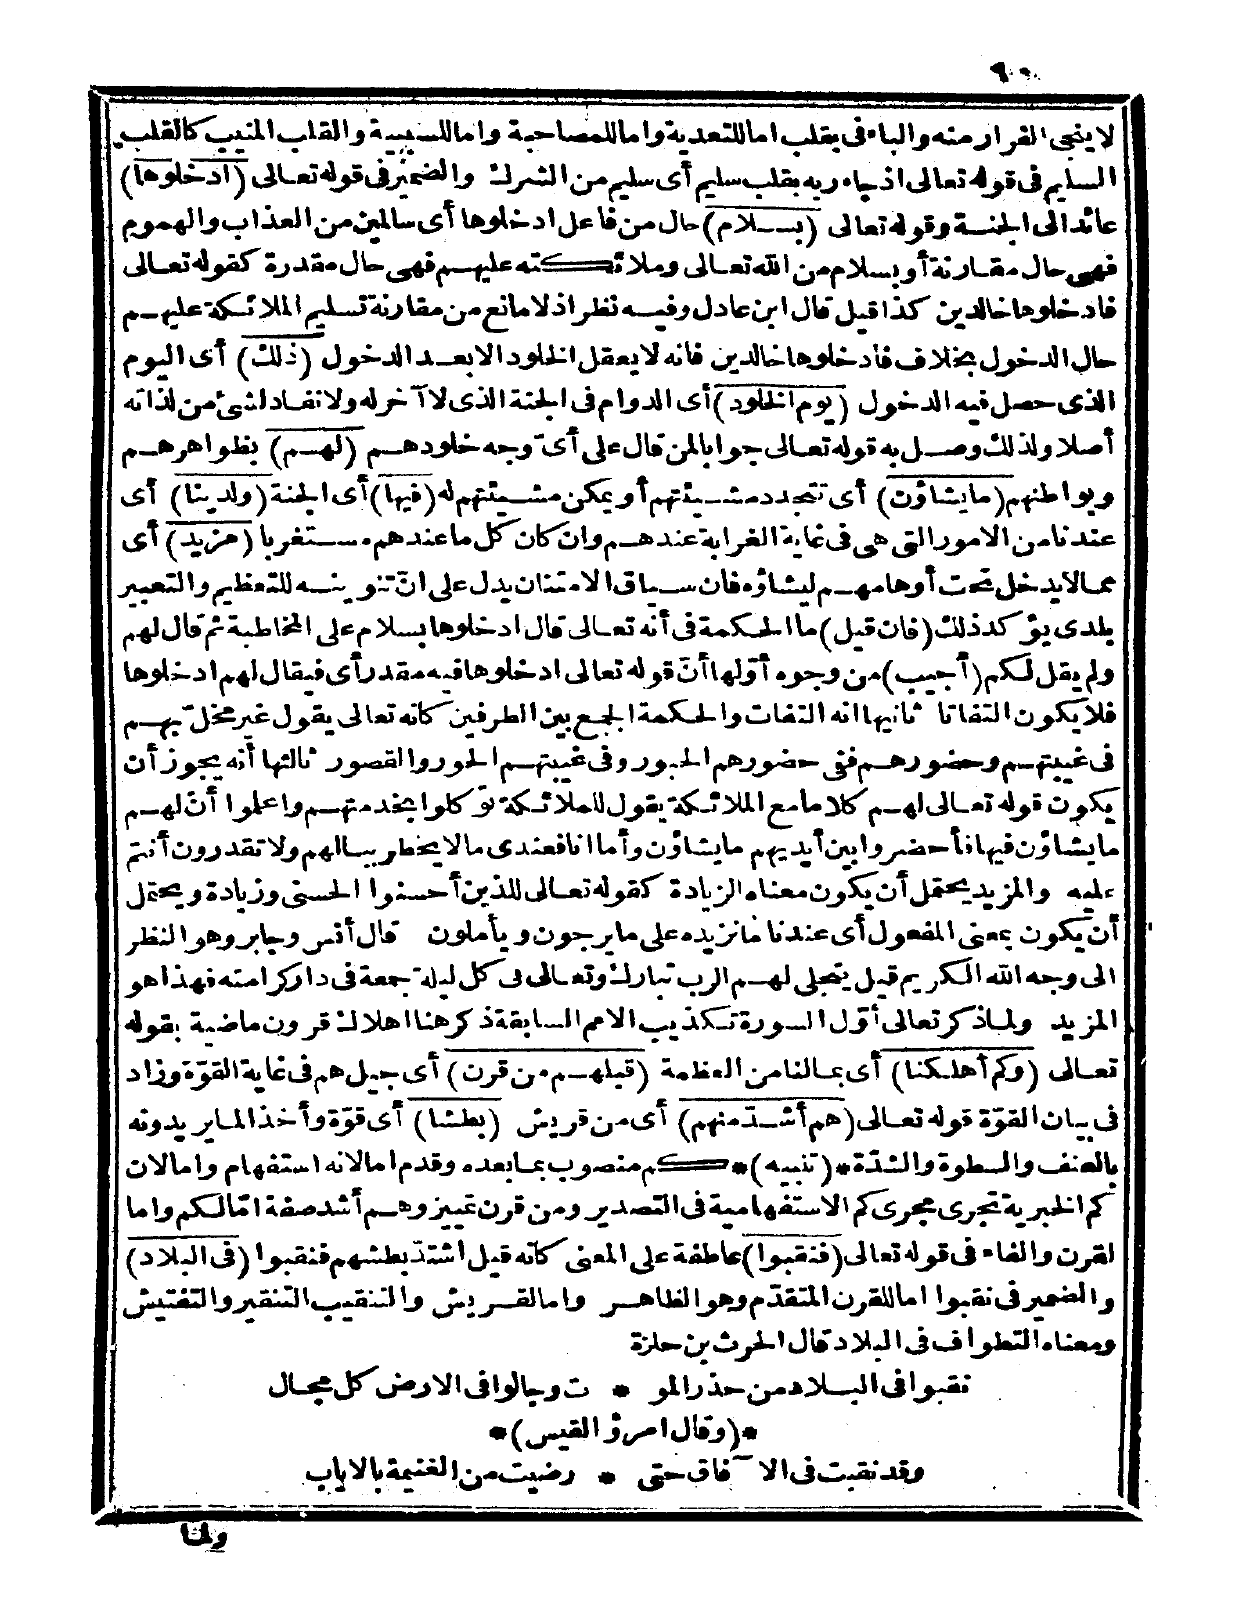 ٩٠
لا ينجى الفرار منه والباء فى بقلب اما للتعدية واما للمصاحبة واما للسببية والقلب المنيب كالقلب
السليم فى قوله تعالى اذ جاء ربه بقلب سليم أى سليم من الشرك والضمير فى قوله تعالى (ادخلوها)
عائد الى الجنة وقوله تعالى (بسلام) حال من فاعل ادخلوها أى سالمين من العذاب والهموم
فهى حال مقارنة أو بسلام من الله تعالى وملائكته عليهم فهى حال مقدرة كقوله تعالى
فادخلوها خالدين كذا قيل قال ابن عادل وفيه نظر اذ لا مانع من مقارنة تسليم الملائكة عليهم
حال الدخول بخلاف فادخلوها خالدين فانه لا يعقل الخلود الا بعد الدخول (ذلك) أى اليوم
الذى حصل فيه الدخول (يوم الخلود) أى الدوام فى الجنة الذى لا آخر له ولا نفاد لشئ من لذاته
أصلا ولذلك وصل به قوله تعالى جوابا لمن قال على أىّ وجه خلودهم (لهم) بظواهرهم
وبواطنهم (ما يشاؤن) أى تتجدد مشيئتهم أو يمكن مشيئتهم له (فيها) أى الجنة (ولدينا) أى
عندنا من الامور التى هى فى غاية الغرابة عندهم وان كان كل ما عندهم مستغربا (مزيد) أى
مما لا يدخل تحت أوهامهم ليشاؤه فان سياق الامتنان يدل على انّ تنوينه للتعظيم والتعبير
بلدى يؤكد ذلك (فان قيل) ما الحكمة فى أنه تعالى قال ادخلوها بسلام على المخاطبة ثم قال لهم
ولم يقل لكم (أجيب) من وجوه أوّلها أنّ قوله تعالى ادخلوها فيه مقدر أى فيقال لهم ادخلوها
فلا يكون التفاتا ثانيها انه التفات والحكمة الجمع بين الطرفين كأنه تعالى يقول غير مخلّ بهم
فى غيبتهم وحضورهم ففى حضورهم الحبور وفى غيبتهم الحور والقصور ثالثها أنه يجوز أن
يكون قوله تعالى لهم كلاما مع الملائكة يقول للملائكة توكلوا بخدمتهم واعلموا أنّ لهم
ما يشاؤن فيها فأحضروا بين أيديهم ما يشاؤن وأما انا فعندى ما لا يخطر ببالهم ولا تقدرون أنتم
عليه والمزيد يحتمل أن يكون معناه الزيادة كقوله تعالى للذين أحسنوا الحسنى وزيادة ويحتمل
أن يكون بمعنى المفعول أى عندنا ما نزيده على ما يرجون ويأملون قال أنس وجابر وهو النظر
الى وجه الله الكريم قيل يتجلى لهم الرب تبارك وتعالى فى كل ليلة جمعة فى دار كرامته فهذا هو
المزيد ولما ذكر تعالى أوّل السورة تكذيب الامم السابقة ذكر هنا اهلاك قرون ماضية بقوله
تعالى (وكم أهلكنا) أى بما لنا من العظمة (قبلهم من قرن) أى جيل هم فى غاية القوّة وزاد
فى بيان القوّة قوله تعالى (هم أشدّ منهم) أى من قريش (بطشا) أى قوّة وأخذا لما يريدونه
بالعنف والسطوة والشدّة * (تنبيه) * كم منصوب بما بعده وقدم اما لانه استفهام واما لان
كم الخبرية تجرى مجرى كم الاستفهامية فى التصدير ومن قرن تمييز وهم أشد صفة امّا لكم واما
لقرن والفاء فى قوله تعالى (فنقبوا) عاطفة على المعنى كأنه قيل اشتدّ بطشهم فنقبوا (فى البلاد)
والضمير فى نقبوا اما للقرن المتقدّم وهو الظاهر واما لقريش والتنقيب التنقير والتفتيش
ومعناه التطواف فى البلاد قال الحرث بن حلزة
نقبوا فى البلاد من حذر المو * ت وجالوا فى الارض كل مجال
* (وقال امرؤ القيس) *
وقد نقبت فى الآفاق حتى * رضيت من الغنيمة بالاياب
ولما